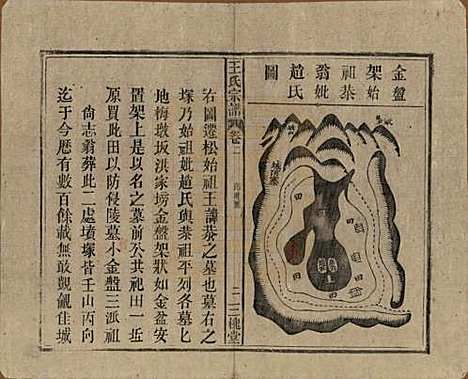 金盤
架始
祖棻
翁妣
趙氏
圖
田
田
田
王氏宗譜
卷二
三槐堂
右圖遷松始祖王諱棻之墓也墓右一
塚乃始祖妣趙氏與棻祖平列各墓匕
地梅墩坂洪家塝金盤架狀如金盆安
置架上是以名之墓前公共祀田一近
原買此田以防侵陵墓小金盤三派祖
尙志翁葬此二處墳塚皆壬山丙向
迄于今歷有數百餘載無敢覬覦佳城